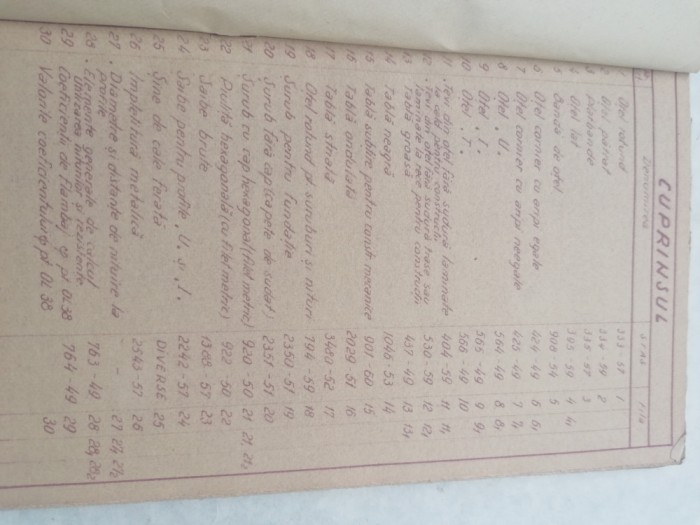 CUPRINSUL
Denumirea STAS Fila
1 Oțel rotund 333-57 1
2 Oțel pătrat 334-59 2
3 Platbande 335-57 3
4 Oțel lat 395-59 4 4₁
5 Bandă de oțel 908-54 5
6 Oțel cornier cu aripi egale 424-49 6 6₁
7 Oțel cornier cu aripi neegale 425-49 7 7₁
8 Oțel .U. 564-49 8 8₁
9 Oțel .I. 565-49 9 9₁
10 Oțel .T. 566-49 10
11 Țevi din oțel fără sudură laminate la cald pentru construcții 404-59 11 11₁
12 Țevi din oțel fără sudură trase sau laminate la rece pentru construcții 530-59 12 12₁
13 Tablă groasă 437-49 13 13₁
14 Tablă neagră 1946-53 14
15 Tablă subțire pentru constr. mecanice 901-60 15
16 Tablă ondulată 2029-51 16
17 Tablă striată 3480-52 17
18 Oțel rotund pt. șuruburi și nituri 794-59 18
19 Șurub pentru fundație 2350-51 19
20 Șurub fără cap (capete de sudat) 2351-51 20
21 Șurub cu cap hexagonal (filet metric) 920-50 21 21₁ 21₂
22 Piuliță hexagonală (cu filet metric) 922-50 22
23 Șaibe brute 1388-57 23
24 Șaibe pentru profile .U. și .I. 2242-57 24
25 Șine de cale ferată DIVERSE 25
26 Împletitură metalică 2543-57 26
27 Diametre și distanțe de nituire la profile - - 27 27₁ 27₂
28 Elemente generale de calcul îmbinarea niturilor și rezistențe 763-49 28 28₁ 28₂
29 Coeficienți de flambaj φ pt OL38 764-49 29
30 Valorile coeficientului φ pt OL38 30